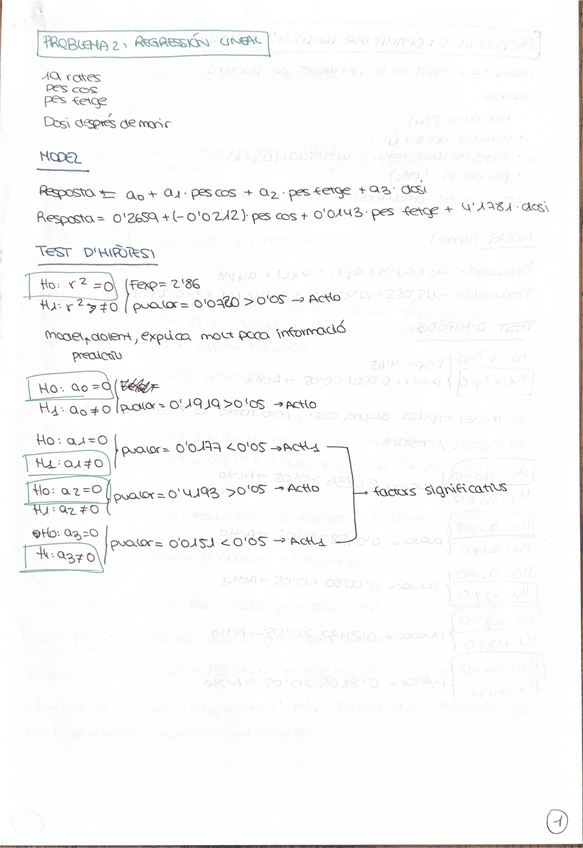 PROBLEMA 2: REGRESSIÓN LINEAL
19 rates
pes cos
pes fetge
Dosi després de morir
MODEL
Resposta = a0 + a1 · pes cos + a2 · pes fetge + a3 · dosi
Resposta = 0'2659 + (-0'0212) · pes cos + 0'0143 · pes fetge + 4'1781 · dosi
TEST D'HIPÒTESI
H0: r² = 0 Fexp = 2'86
H1: r² ≠ 0 pvalor = 0'0720 > 0'05 → ActH0
model dolent, explica molt poca informació
predictiu
H0: a0 = 0
H1: a0 ≠ 0 pvalor = 0'1919 > 0'05 → ActH0
H0: a1 = 0
H1: a1 ≠ 0 pvalor = 0'0177 < 0'05 → ActH1
H0: a2 = 0 pvalor = 0'4193 > 0'05 → ActH0 → factors significatius
H1: a2 ≠ 0
H0: a3 = 0 pvalor = 0'0151 < 0'05 → ActH1
H1: a3 ≠ 0
1